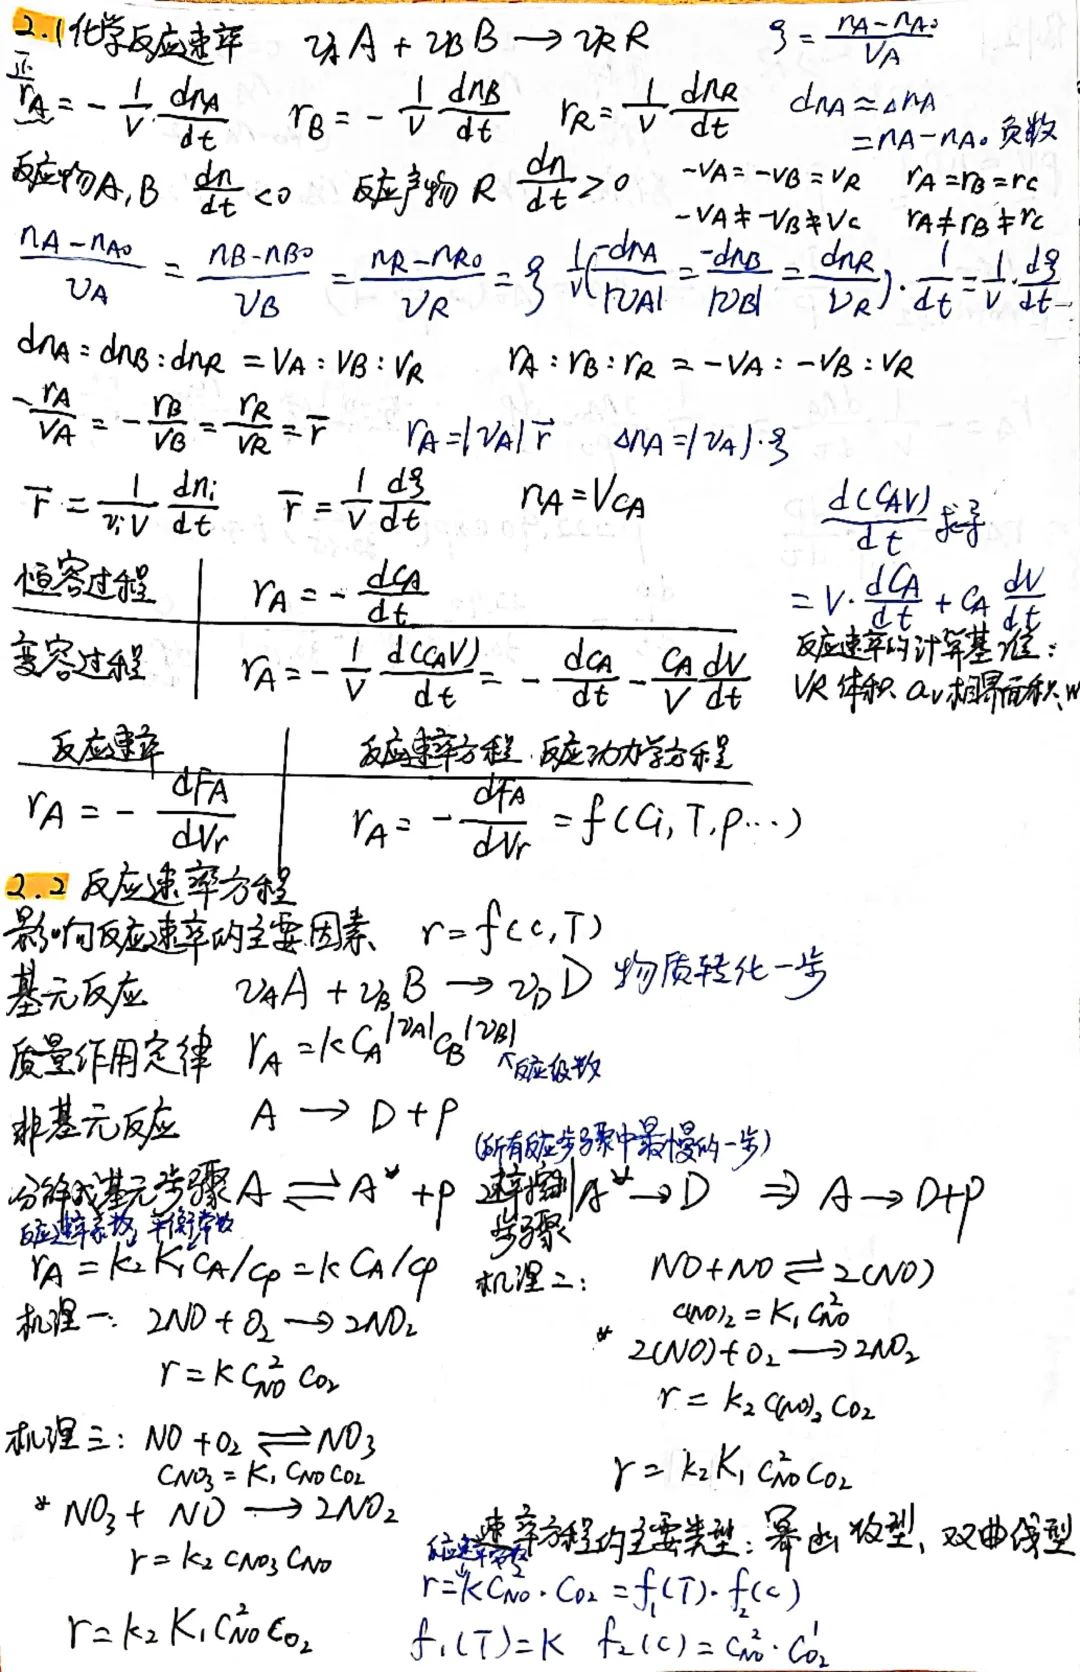 2.1 化学反应速率 νA A + νB B → νR R ξ = (nA - nA0)/νA
正
rA = - 1/V · dnA/dt rB = - 1/V dnB/dt rR = 1/V · dnR/dt dnA ≈ ΔnA
= nA - nA0 负数
反应物A,B dn/dt < 0 反应产物 R dn/dt > 0 -νA = -νB = νR rA = rB = rC
-νA ≠ -νB ≠ νC rA ≠ rB ≠ rC
(nA - nA0)/νA = (nB - nB0)/νB = (nR - nR0)/νR = ξ 1/V (-dnA/|νA| = -dnB/|νB| = dnR/νR) · 1/dt = 1/V · dξ/dt
dnA = dnB : dnR = νA : νB : νR rA : rB : rR = -νA : -νB : νR
- rA/νA = - rB/νB = rR/νR = r̄ rA = |νA| r̄ ΔnA = |νA| · ξ
r̄ = 1/(νi V) dni/dt r̄ = 1/V dξ/dt nA = V cA d(cAV)/dt 求导
= V · dcA/dt + cA dV/dt
恒容过程 rA = - dcA/dt
变容过程 rA = - 1/V d(cAV)/dt = - dcA/dt - cA/V dV/dt
反应速率的计算基准:
VR 体积 av 相界面积 W
反应速率 反应速率方程 反应动力学方程
rA = - dFA/dVr rA = - dFA/dVr = f(Ci, T, p...)
2.2 反应速率方程
影响反应速率的主要因素 r = f(c, T)
基元反应 νA A + νB B → νD D 物质转化一步
质量作用定律 rA = k CA^|νA| CB^|νB| ↖反应级数
非基元反应 A → D + P
(所有反应步骤中最慢的一步)
分解成基元步骤 A ⇌ A* + P 速率控制步骤 A* → D ⇒ A → D+P
反应速率系数 平衡常数
rA = k2 K1 CA/CP = k CA/CP
机理一: 2NO + O2 → 2NO2
r = k C²NO CO2
机理二: NO + NO ⇌ 2(NO)
C(NO)2 = K1 C²NO
* 2(NO) + O2 → 2NO2
r = k2 C(NO)2 CO2
r = k2 K1 C²NO CO2
机理三: NO + O2 ⇌ NO3
CNO3 = K1 CNO CO2
* NO3 + NO → 2NO2
r = k2 CNO3 CNO
r = k2 K1 C²NO CO2
速率方程的主要类型: 幂函数型、双曲线型
反应速率常数
r = k C²NO · CO2 = f1(T) · f2(c)
f1(T) = K f2(c) = C²NO · C¹O2